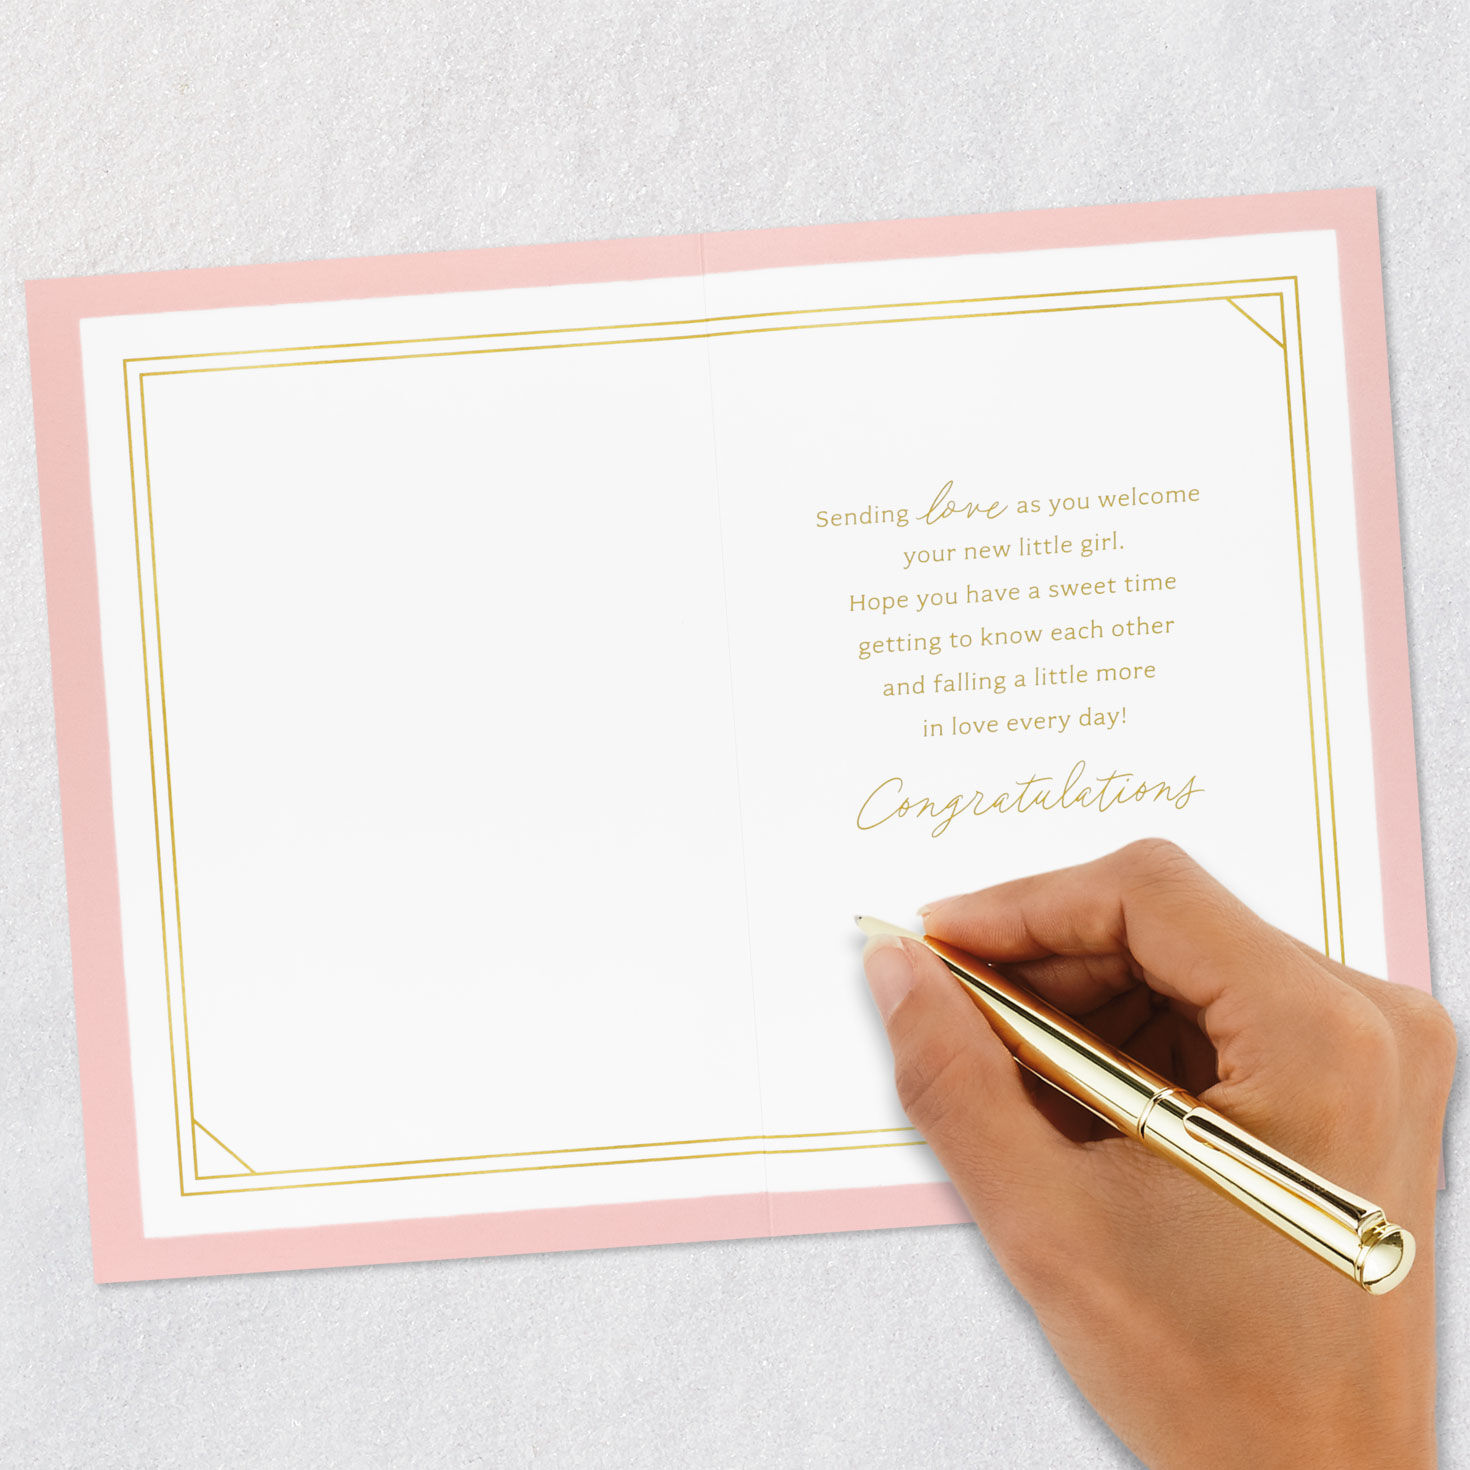 Sending love as you welcome
your new little girl.
Hope you have a sweet time
getting to know each other
and falling a little more
in love every day!
Congratulations